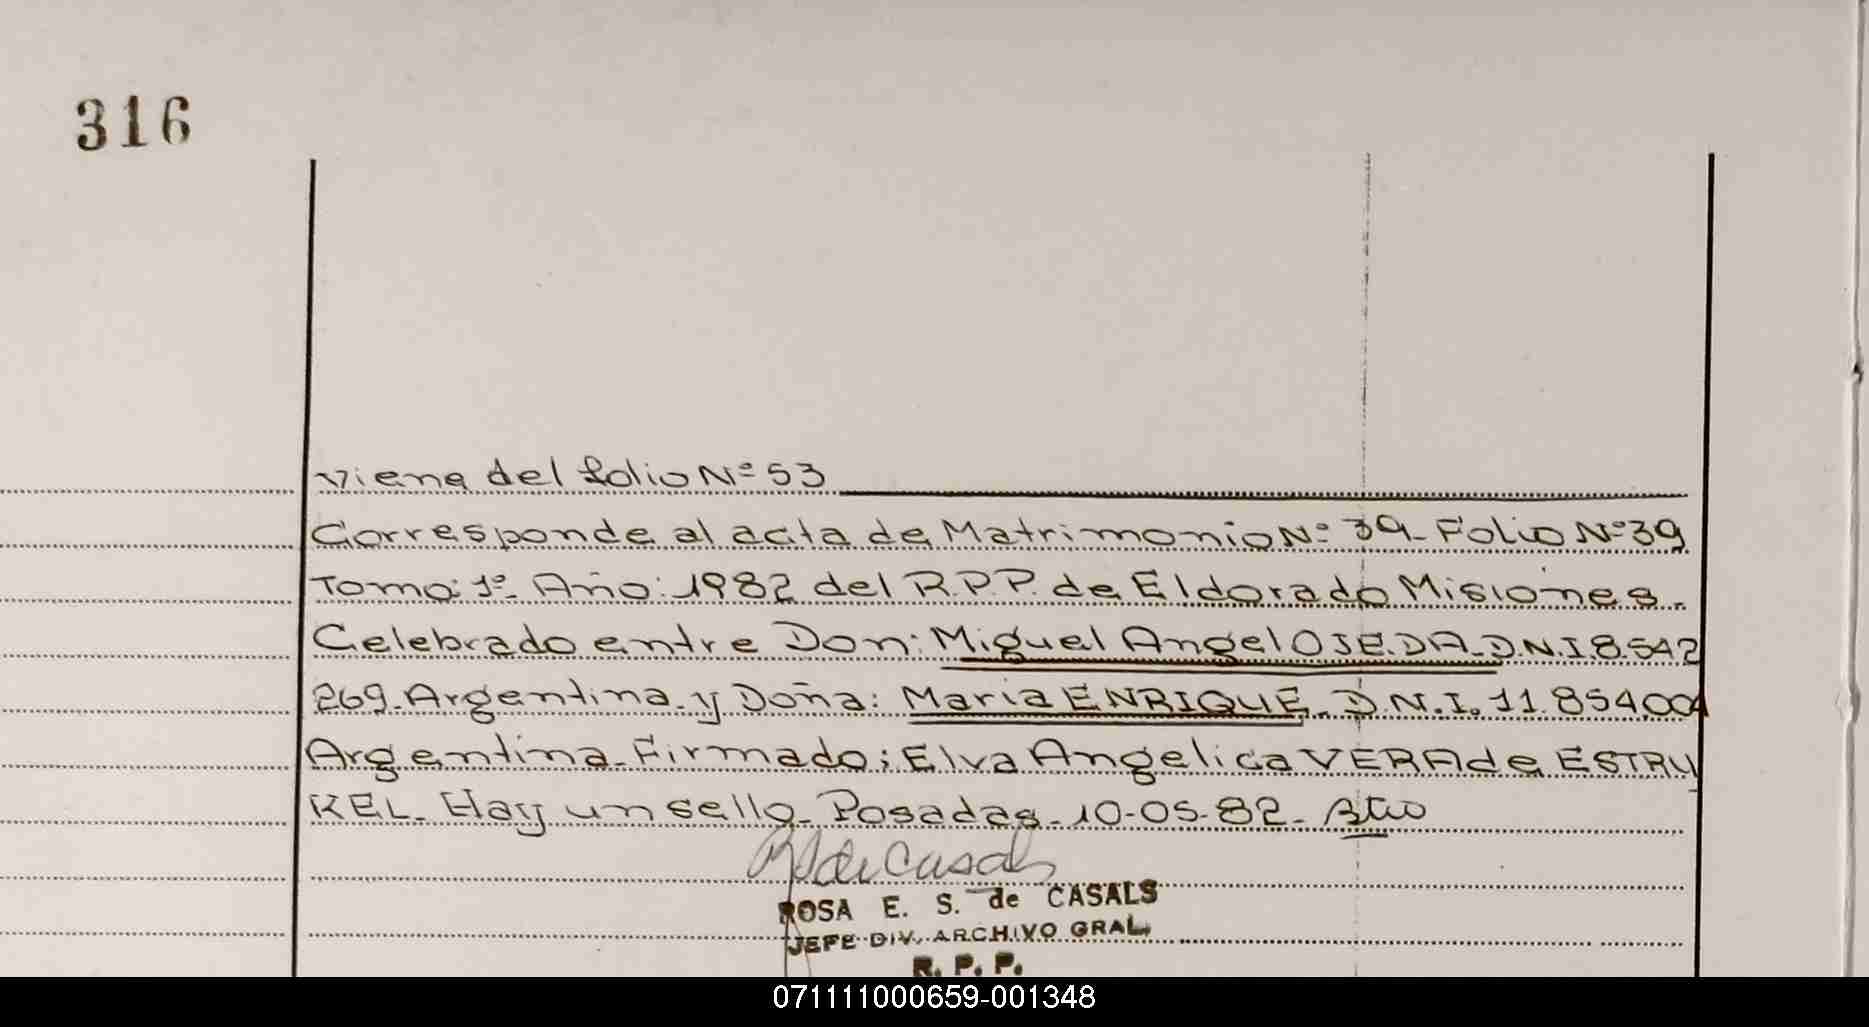 316
Viene del folio Nº 53
Corresponde al acta de Matrimonio Nº 39- Folio Nº 39
Tomo: 1º- Año: 1982 del R.P.P. de Eldorado Misiones-
Celebrado entre Don: Miguel Angel OJEDA- D.N.I. 8.542
269- Argentina- y Doña: Maria ENRIQUE- D.N.I. 11.854.004
Argentina- Firmado: Elva Angelica VERA de ESTRU
KEL- Hay un sello- Posadas- 10-05-82-
R S de Casals
ROSA E. S. de CASALS
JEFE DIV. ARCHIVO GRAL.
R. P. P.
071111000659-001348